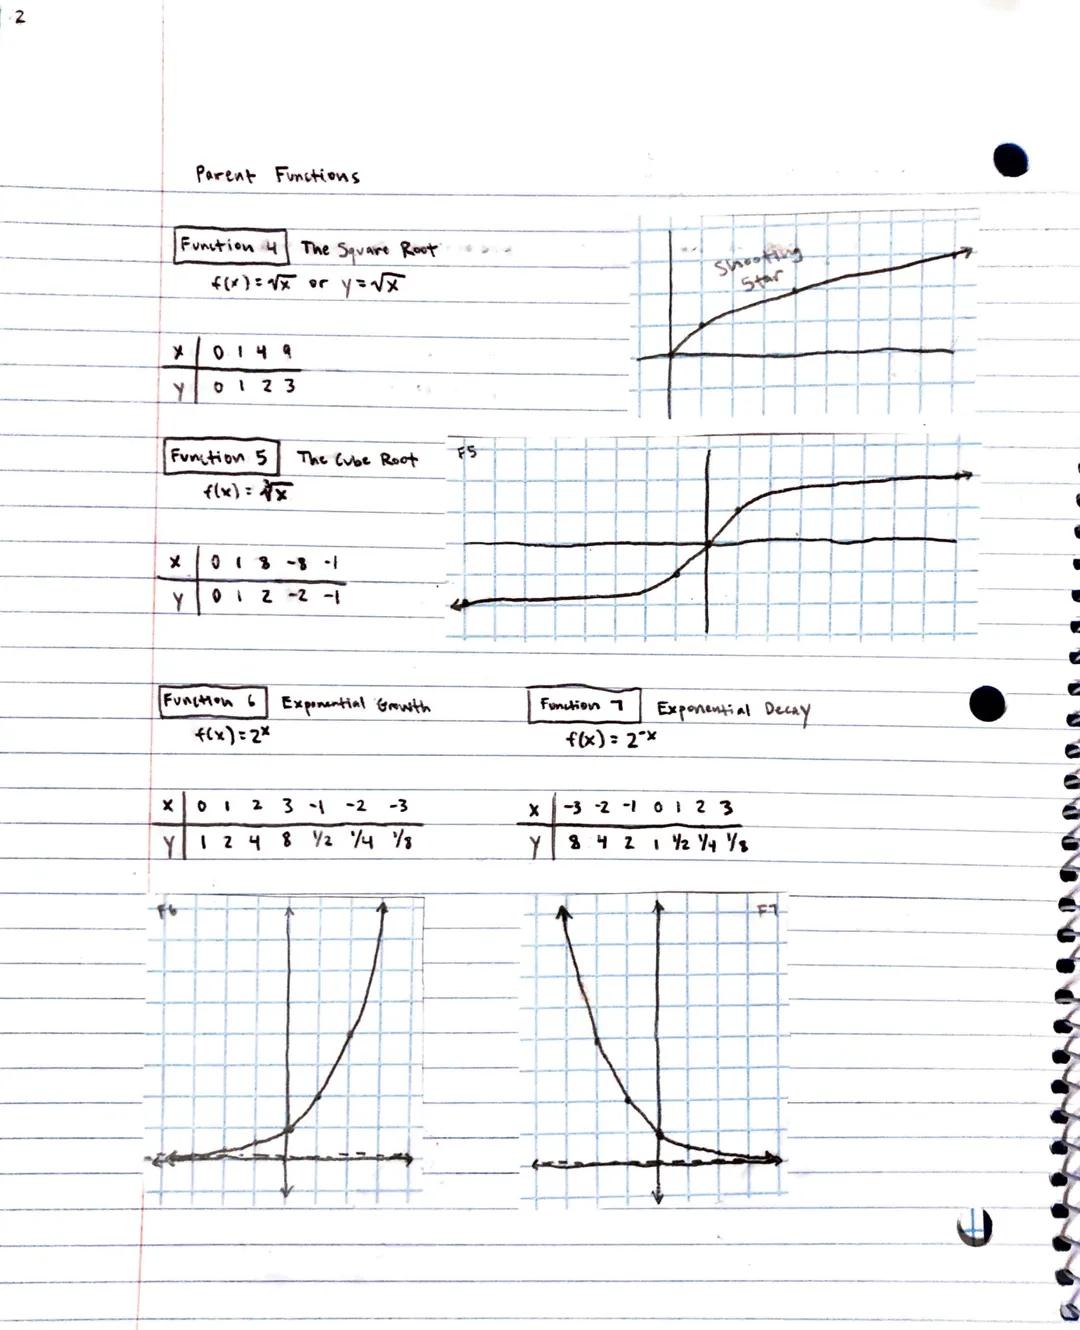 2
Parent Functions
Function 4 The Square Root
f(x)=√x or y=√x
Shooting
Star
X | 0 1 4 9
Y | 0 1 2 3
Function 5 The Cube Root
F5
f(x) = ∛x
X | 0 1 8 -8 -1
Y | 0 1 2 -2 -1
Function 6 Exponential Growth
f(x)=2ˣ
Function 7 Exponential Decay
f(x) = 2⁻ˣ
X | 0 1 2 3 -1 -2 -3
Y | 1 2 4 8 1/2 1/4 1/8
X | -3 -2 -1 0 1 2 3
Y | 8 4 2 1 1/2 1/4 1/8
F6
F7